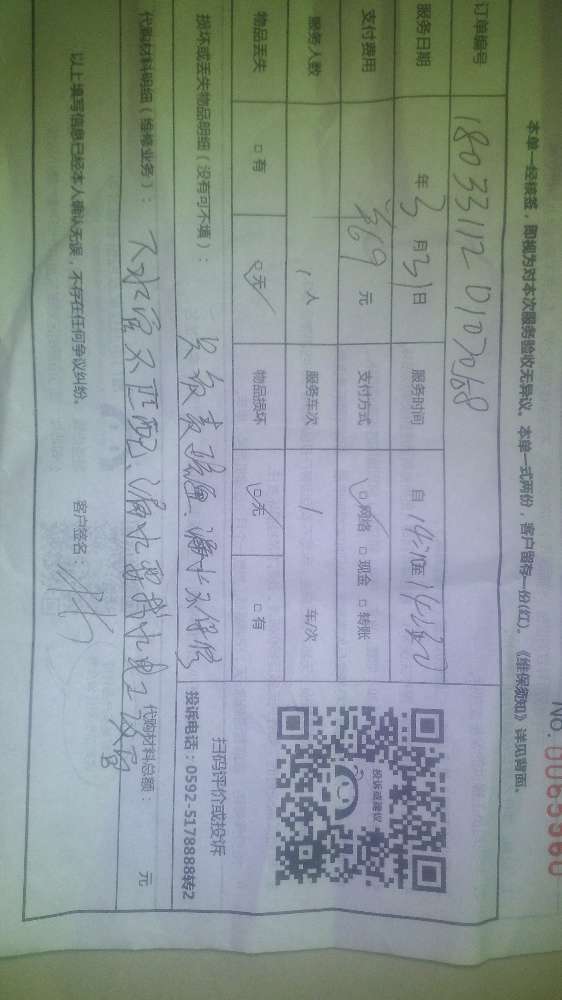 No. 0065980
本单一经核签，即视为对本次服务验收无异议。本单一式两份，客户留存一份(红)。《维保须知》详见背面。
订单编号 180331120107068
服务日期 年 3 月 31 日 服务时间 自
支付费用 ¥69 元 支付方式 网络 现金 转账
服务人数 1 人 服务车次 1 车/次
物品丢失 有 无 物品损坏 无 有
损坏或丢失物品明细（没有可不填）： 漏水又保修
代购材料明细（维修业务）： 下水管不匹配、漏水要找水电工 代购材料总额： 元
以上填写信息已经本人确认无误，不存在任何争议纠纷。 客户签名：
投诉或建议
扫码评价或投诉
投诉电话：0592-5178888转2